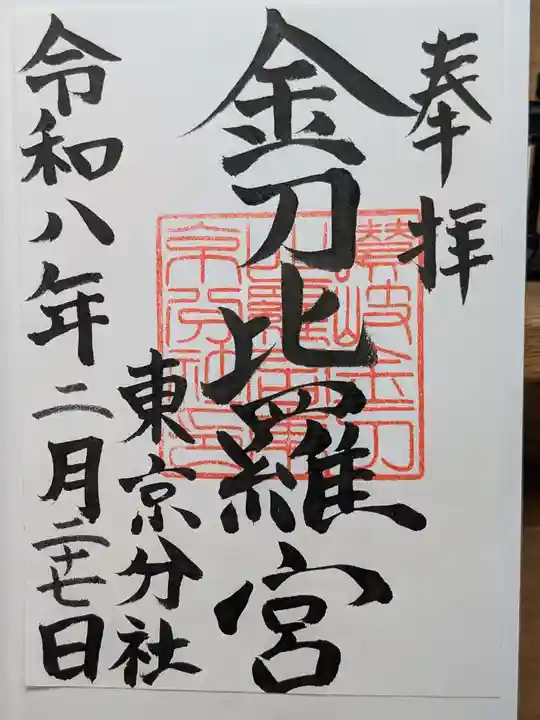 奉拝
金刀比羅宮
東京分社
令和八年二月二十七日